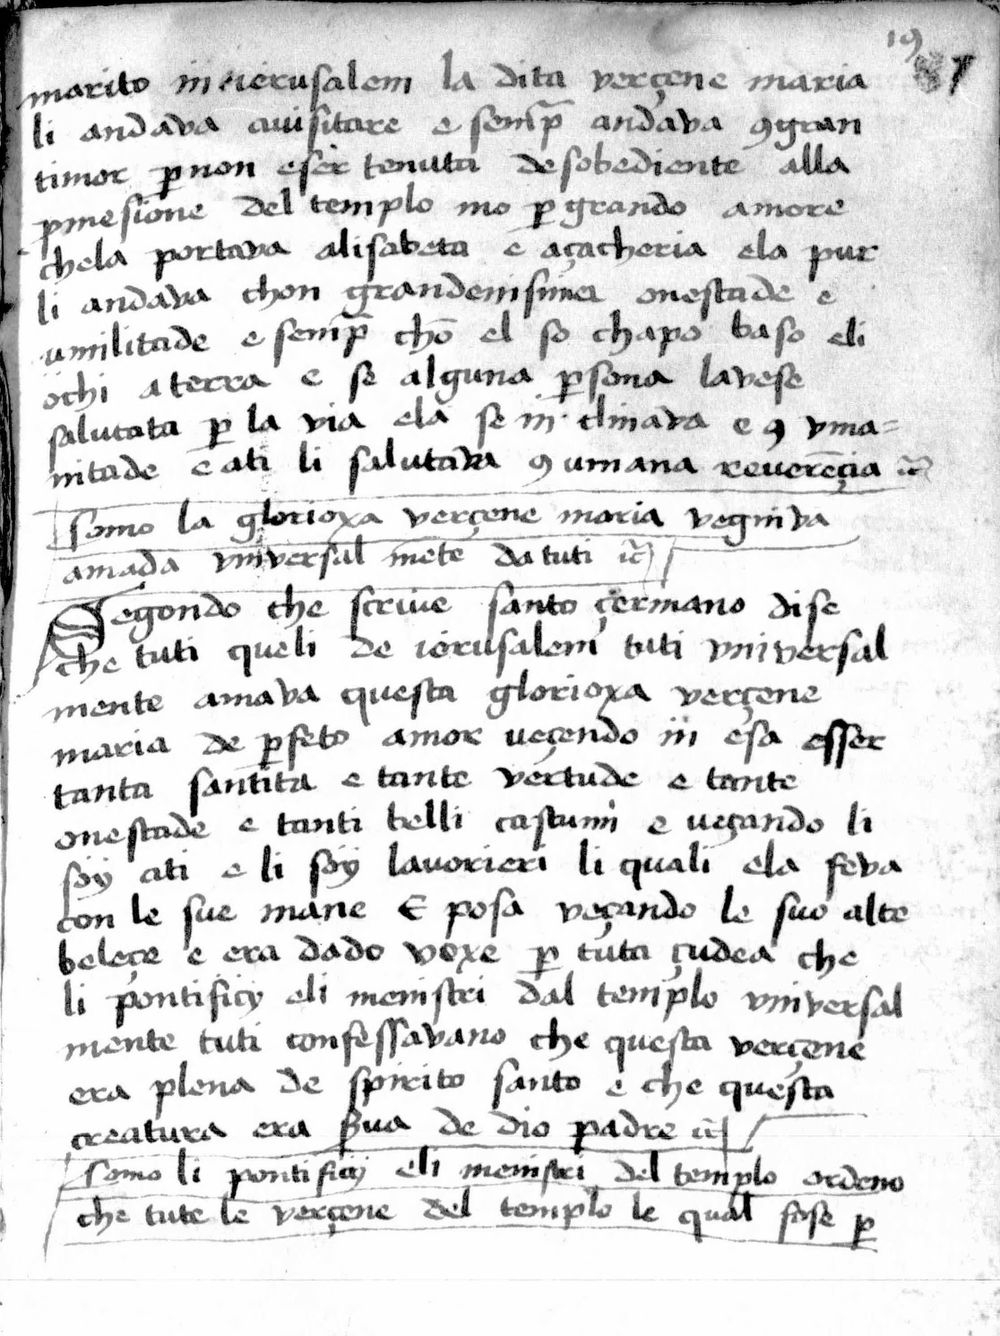 19
marito in ierusalem la dita verçene maria
li andava avisitare e semp̄ andava ꝯgran
timor ꝑnon eser tenuta desobediente alla
ꝑmesione del templo mo ꝑ grando amore
chela portava alisabeta e açacheria ela pur
li andava chon grandenisima onestade e
umilitade e semp̄ chō el so chapo baso eli
ochi a terra e se alguna ꝑsona lavese
salutata ꝑ la via ela se in clinava e ꝯ vma=
nitade e ati li salutava ꝯ umana reverēçia
somo la glorioxa verçene maria vegniva
amada vniversal mete da tuti
Segondo che scrive santo çermano dise
che tuti queli de ierusalem tuti vniversal
mente amava questa glorioxa verçene
maria de ꝑfeto amor veçendo in esa esser
tanta santita e tante vertude e tante
onestade e tanti belli custumi e veçando li
soy ati e li soy lavorieri li quali ela feva
con le sue mane E posa veçando le suo alte
beleçe e era dado voxe ꝑ tuta çudea che
li pontificy eli menistri dal templo vniversal
mente tuti confessavano che questa verçene
era plena de spirito santo e che questa
creatura era ꝟua de dio padre
somo li pontificy eli menistri del templo ordeno
che tute le verçene del templo le qual fose ꝑ